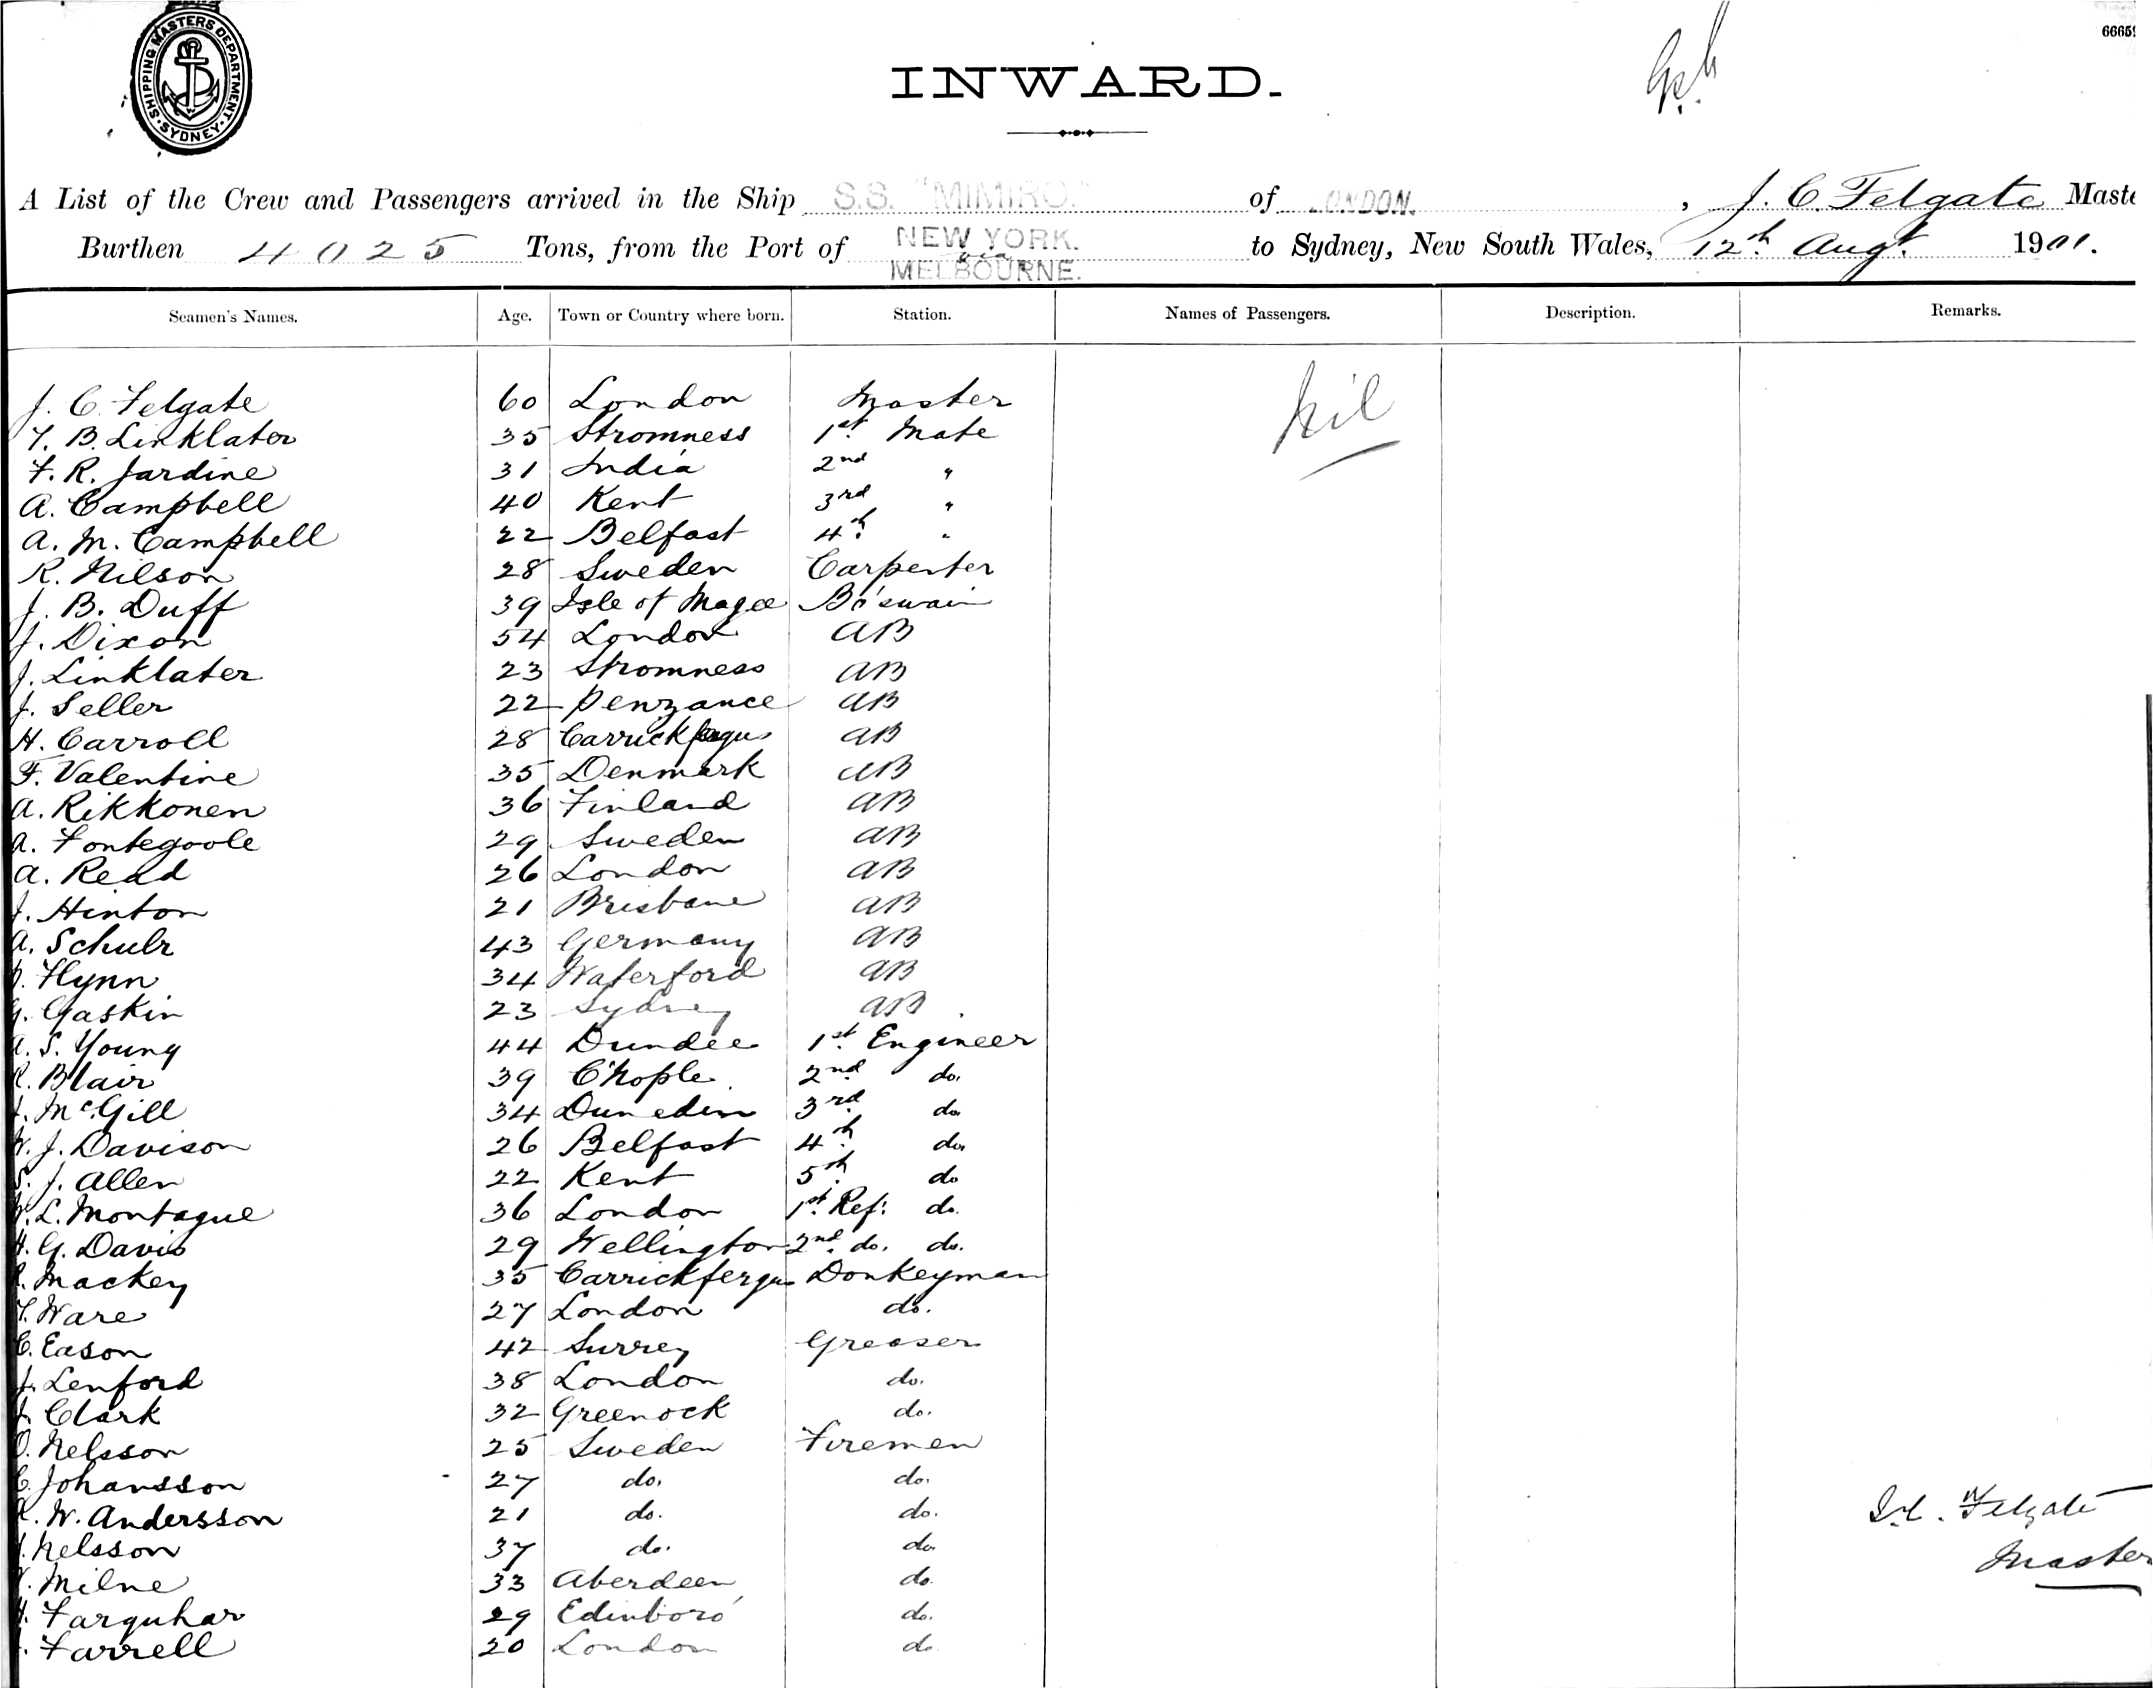 SHIPPING MASTERS DEPARTMENT. SYDNEY
6665
INWARD.
A List of the Crew and Passengers arrived in the Ship S.S. "MIMIRO." of LONDON. , J. C. Felgate Maste
Burthen 4025 Tons, from the Port of NEW YORK. via MELBOURNE. to Sydney, New South Wales, 12th Augt. 1901.
Seamen's Names. Age. Town or Country where born. Station. Names of Passengers. Description. Remarks.
J. C. Felgate 60 London Master Nil
T. B. Linklater 35 Stromness 1st Mate
F. R. Jardine 31 India 2nd "
A. Campbell 40 Kent 3rd "
A. M. Campbell 22 Belfast 4th "
R. Nilson 28 Sweden Carpenter
J. B. Duff 39 Isle of Magee Bo'swain
J. Dixon 54 London AB
J. Linklater 23 Stromness AB
J. Seller 22 Penzance AB
H. Carroll 28 Carrickfergus AB
F. Valentine 35 Denmark AB
A. Rikkonen 36 Finland AB
A. Fontegoole 29 Sweden AB
A. Read 26 London AB
J. Hinton 21 Brisbane AB
A. Schulz 43 Germany AB
Flynn 34 Waterford AB
G. Gaskin 23 Sydney AB
A. S. Young 44 Dundee 1st Engineer
R. Blair 39 C'nople 2nd do.
J. McGill 34 Dunedin 3rd do.
W. J. Davison 26 Belfast 4th do.
S. J. Allen 22 Kent 5th do
W. L. Montague 36 London 1st Ref: do.
H. G. Davis 29 Wellington 2nd do. do.
Mackey 35 Carrickfergus Donkeyman
T. Ware 27 London do.
C. Eason 42 Surrey Greaser
J. Lenford 38 London do.
J. Clark 32 Greenock do.
O. Nelsson 25 Sweden Firemen
C. Johansson 27 do. do.
W. Andersson 21 do. do.
Nelsson 37 do. do.
Milne 33 Aberdeen do.
Farquhar 29 Edinboro' do.
Farrell 20 London do
J. C. Felgate
Master